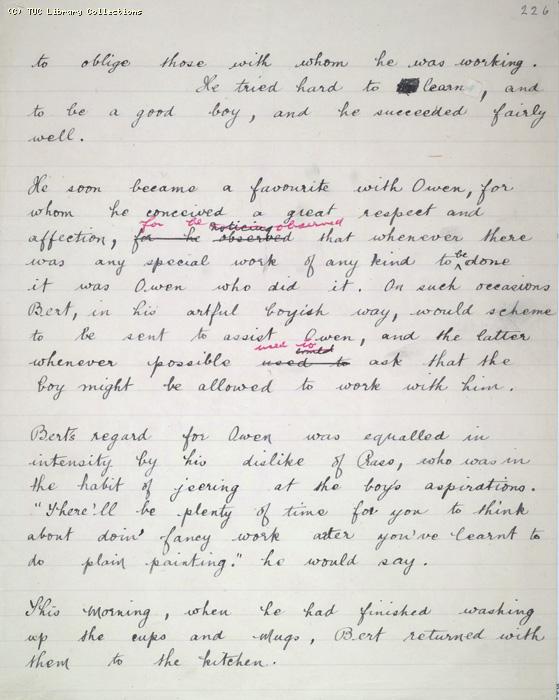 (C) TUC Library Collections
226
to oblige those with whom he was working.
He tried hard to learn, and
to be a good boy, and he succeeded fairly
well.
He soon became a favourite with Owen, for
whom he conceived a great respect and
for he noticing observed
affection, for he observed that whenever there
was any special work of any kind to be done
it was Owen who did it. On such occasions
Bert, in his artful boyish way, would scheme
to be sent to assist Owen, and the latter
used to would
whenever possible used to ask that the
boy might be allowed to work with him.
Bert's regard for Owen was equalled in
intensity by his dislike of Crass, who was in
the habit of jeering at the boy's aspirations.
"There'll be plenty of time for you to think
about doin' fancy work after you've learnt to
do plain painting." he would say.
This morning, when he had finished washing
up the cups and mugs, Bert returned with
them to the kitchen.